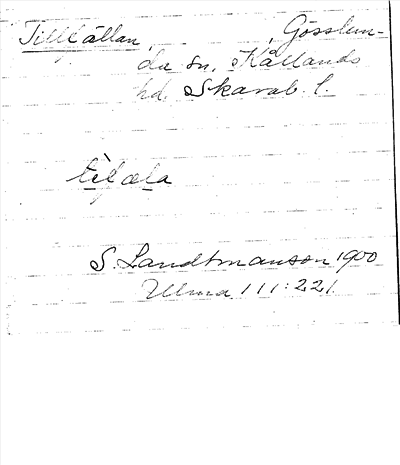 Tillkällan, Gösslun-
da sn. Kållands
hd. Skarab. l.
S. Landtmanson 1900
Ulma 111:221.